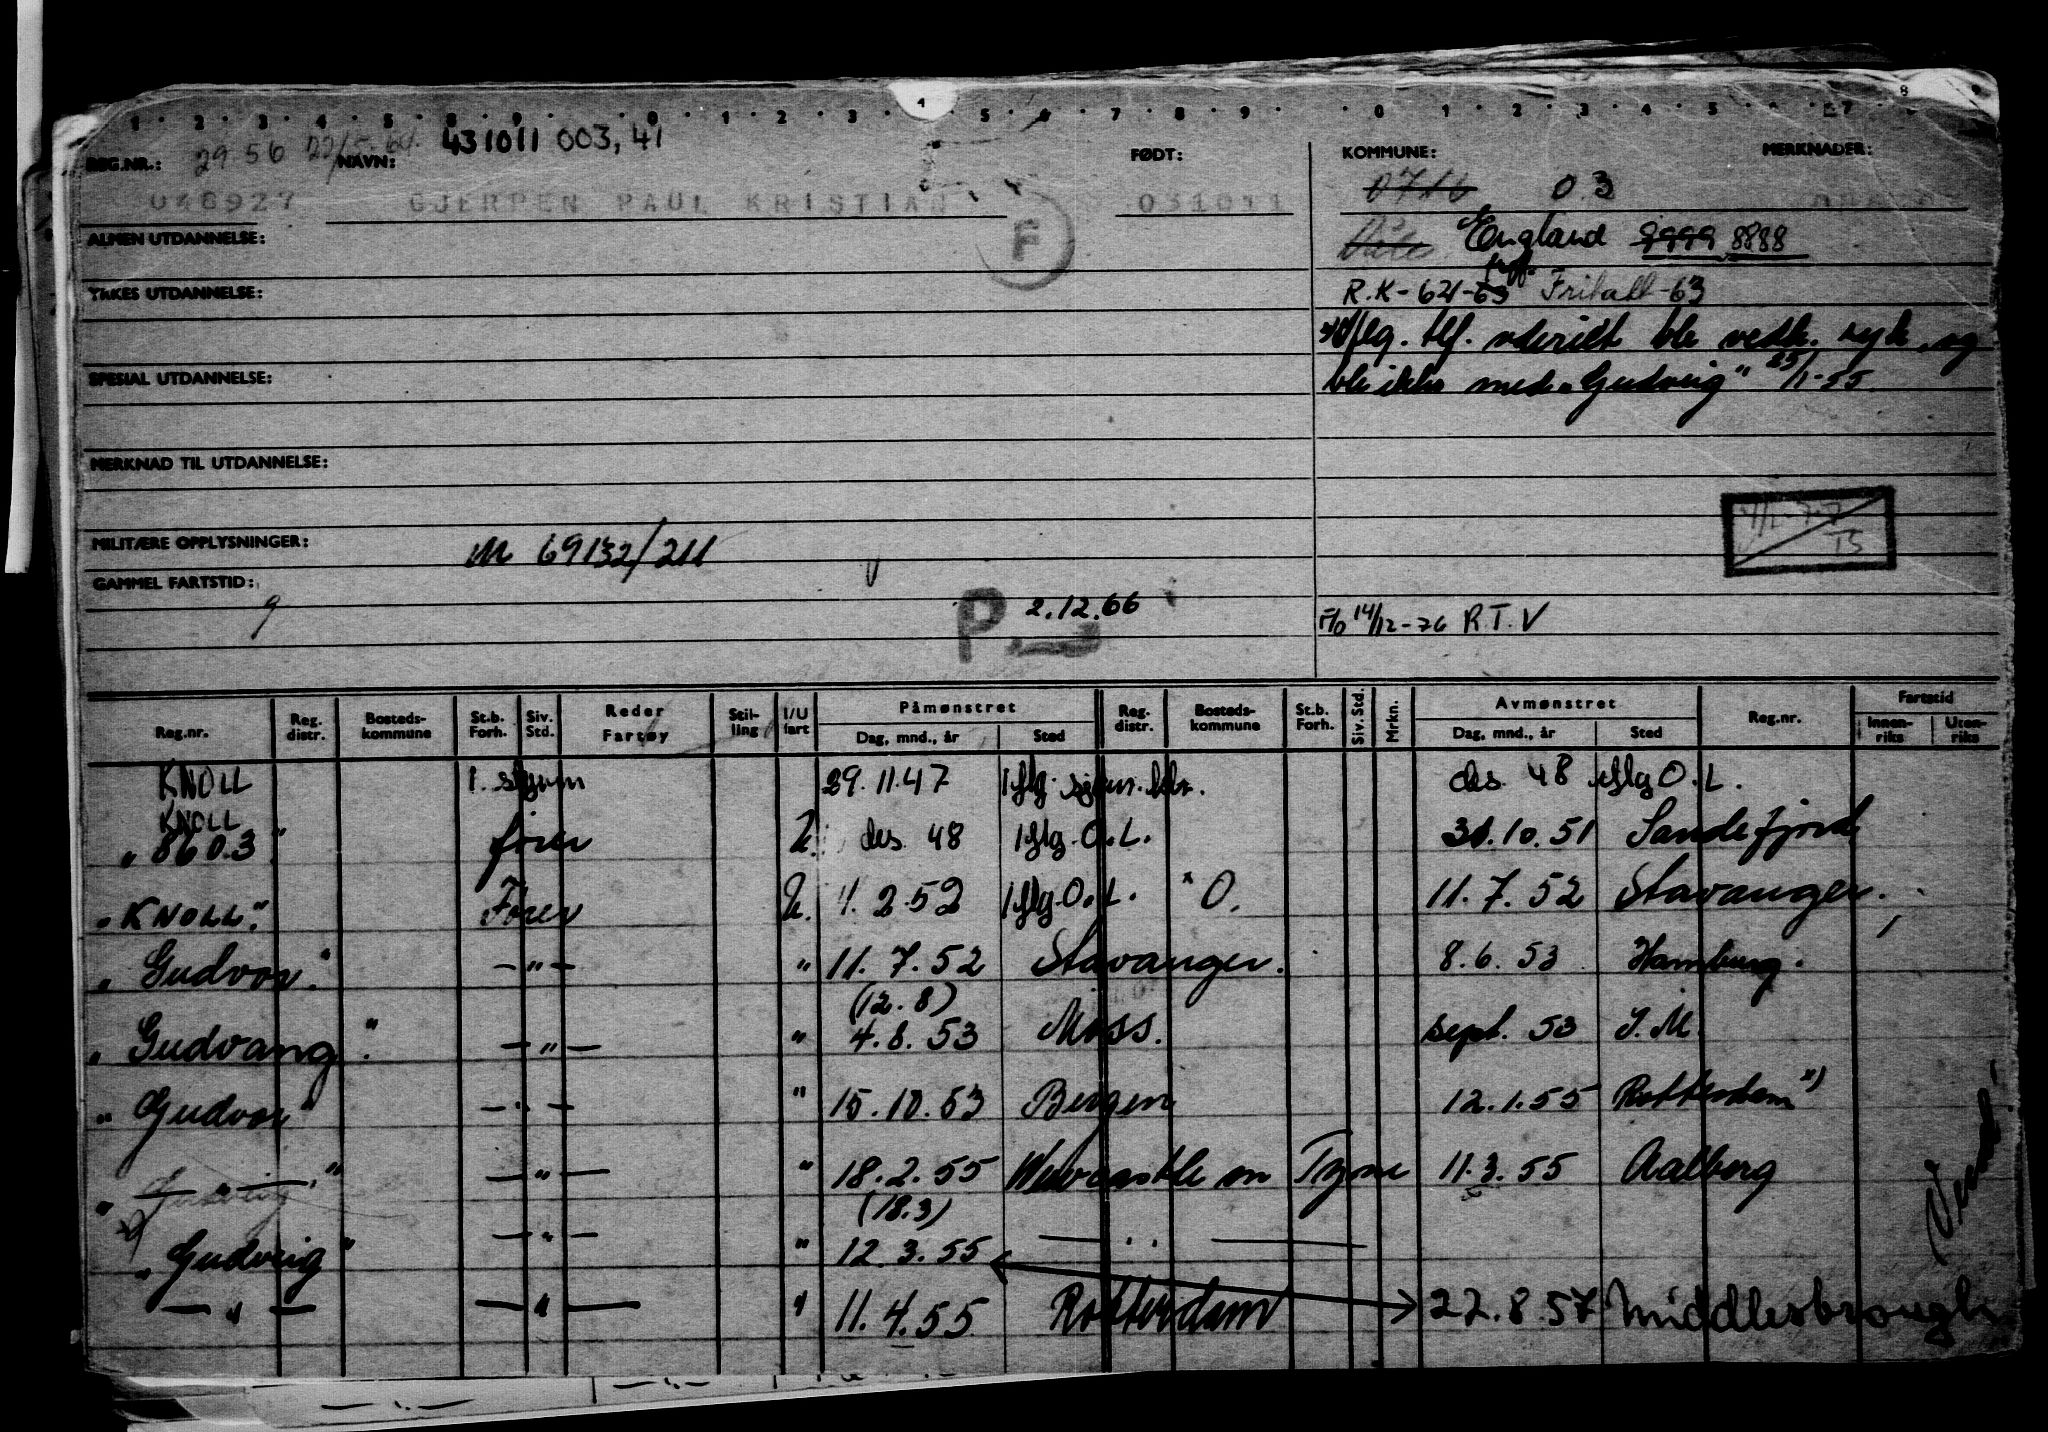 1 · 2 · 3 · 4 · 5 · 8 · 9 · 0 · 1 · 2 · 3 · 5 · 6 · 7 · 8 · 9 · 0 · 1 · 2 · 3 · 4 · 5 · 7 · 8
REG.NR.: 29 56 NAVN: 431011 003,41 FØDT: KOMMUNE: MERKNADER:
048927 GJERPEN PAUL KRISTIAN 031011 0716 03
F
ALMEN UTDANNELSE: England 9999 8888
YRKES UTDANNELSE: R.K-621-63 Fritatt-63
iflg. tlf. ble vedk. syk og
SPESIAL UTDANNELSE: ble ikke med "Gudveig" 25/1-55
MERKNAD TIL UTDANNELSE:
MILITÆRE OPPLYSNINGER: M 69132/211
TS
GAMMEL FARTSTID:
9 P. 2.12.66 F/O 14/12-76 R.T.V
Reg.nr. Reg. distr. Bosteds-kommune St.b. Forh. Siv. Std. Reder Fartøy Stil-ling I/U fart Påmønstret Dag, mnd., år Sted Reg. distr. Bosteds-kommune St.b. Forh. Siv. Std. Mrkn. Avmønstret Dag, mnd., år Sted Reg.nr. Fartstid Innen-riks Uten-riks
KNOLL 1. styrm 29.11.47 iflg. sjøm. des. 48 iflg O.L.
KNOLL
"8603" fører U. des 48 iflg. O.L. 31.10.51 Sandefjord
"KNOLL" Fører U. 4.2.52 iflg. O.L. O. 11.7.52 Stavanger.
"Gudvor" — " — " 11.7.52 Stavanger. 8.6.53 Hamburg.
(12.8)
"Gudvang" — " — " 4.8.53 Moss. sept. 53 S.M.
"Gudvor" — " — " 15.10.53 Bergen 12.1.55 Rotterdam
" — " — " — " — " 18.2.55 Newcastle on Tyne 11.3.55 Aalborg
(18.3)
"Gudveig" — " — " 12.3.55 — " —
— " — — " — " 11.4.55 Rotterdam 22.8.57 Middlesbrough